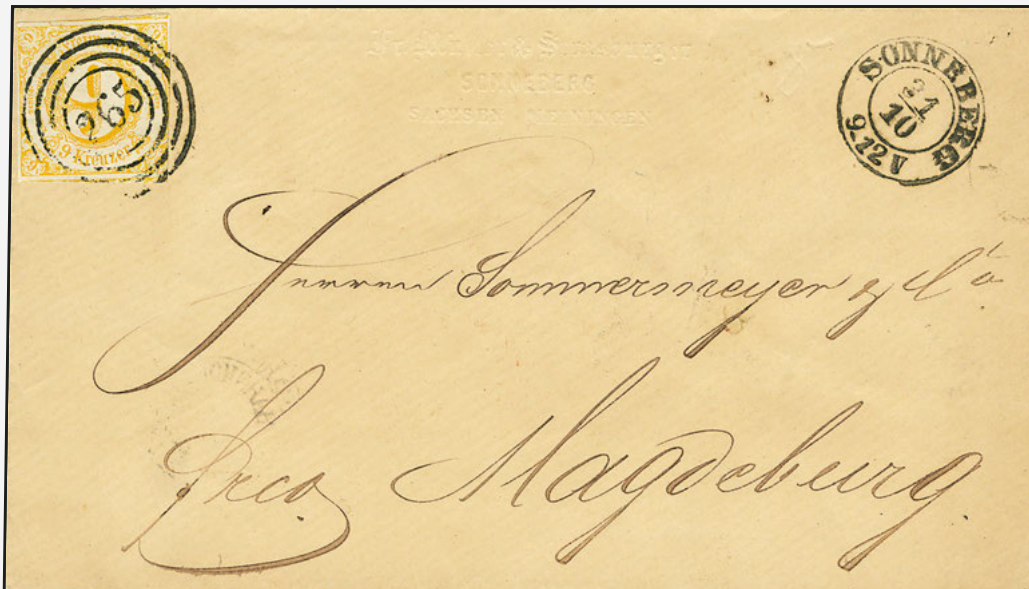 9 Kreuzer
265
SONNEBERG
SACHSEN MEININGEN
SONNEBERG
21
10
9-12 V
Herren Sommermeyer & Co
frco Magdeburg